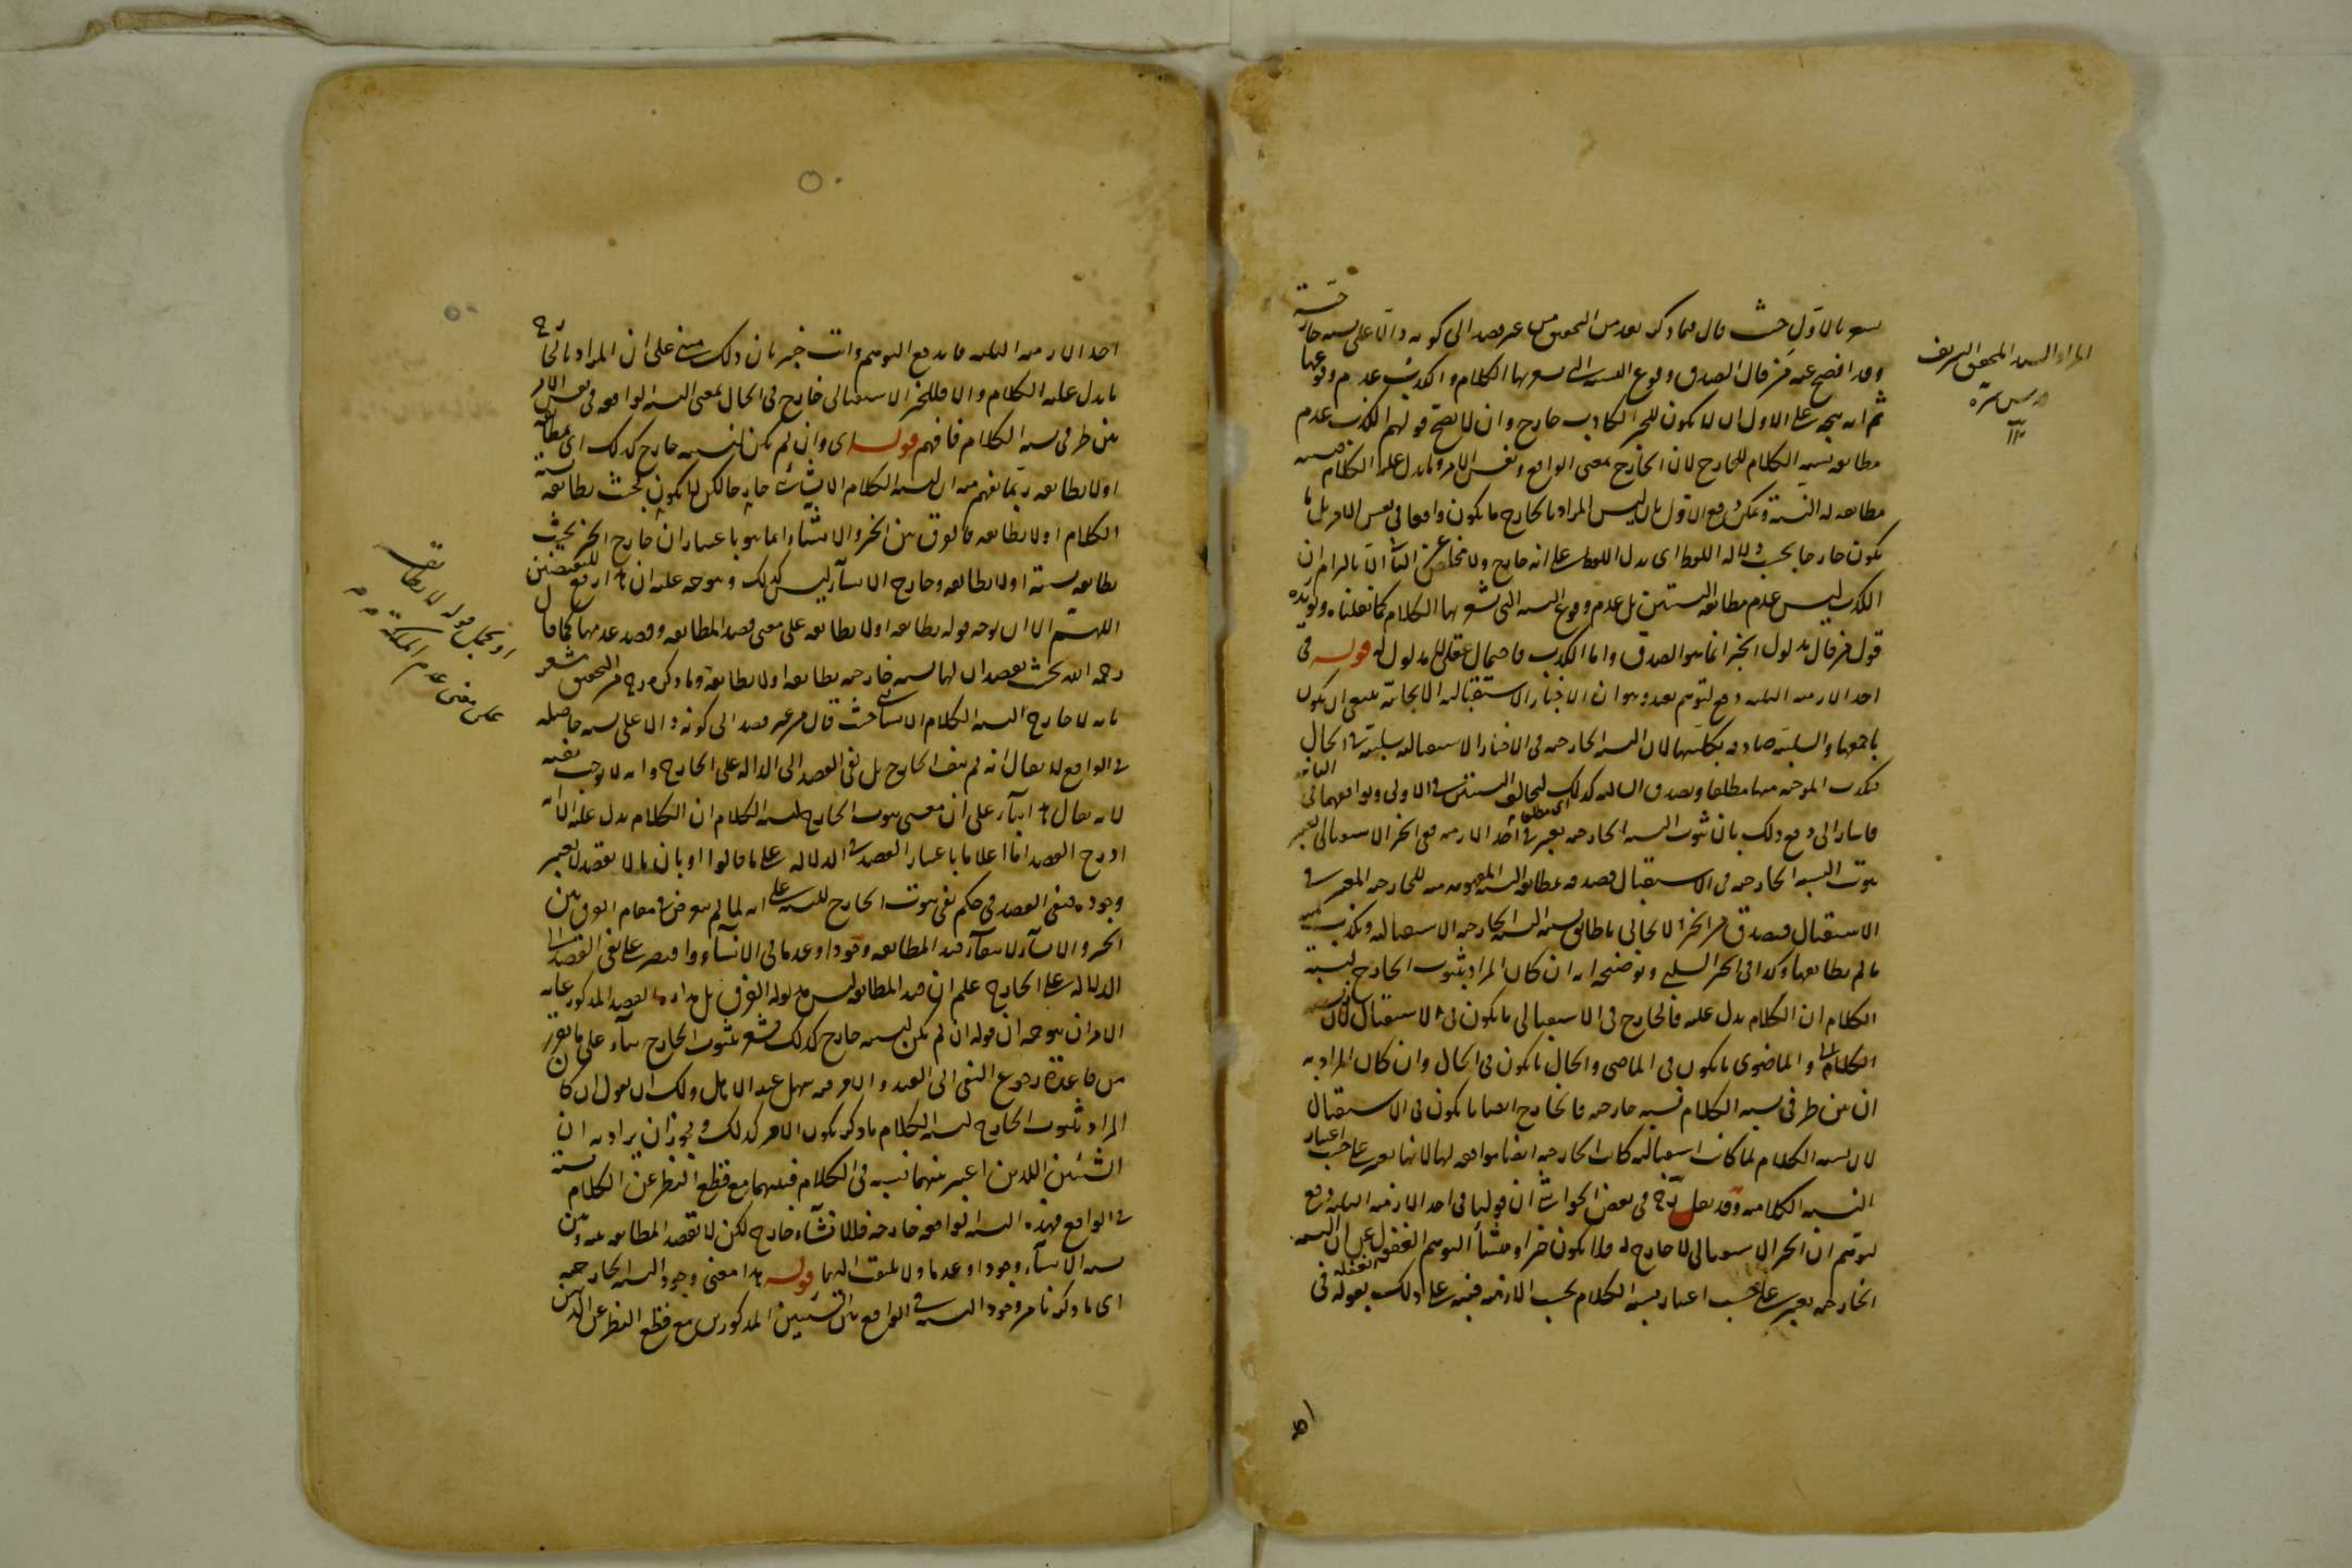 بالاول حيث قال فيما ذكر بعد من التحقيق من غير قصد الى كونه دالا على نسبة خارجية
وقد افصح عنه من قال الصدق وقوع النسبة التي يشعر بها الكلام والكذب عدم وقوعها
ثم انه يتجه على الاول ان لا يكون للخبر الكاذب خارج وان لا يصح قولهم الكذب عدم
مطابقة نسبة الكلام للخارج لان الخارج بمعنى الواقع ونفس الامر وما يدل عليه الكلام
ليس المراد بالخارج ما يكون واقعا في نفس الامر بل ما
يكون خارجا بحسب دلالة اللفظ اى يدل اللفظ على انه خارج ولا مخلص عن الثانى الا بالتزام ان
الكذب ليس عدم مطابقة النسبتين بل عدم وقوع النسبة التي يشعر بها الكلام كما نقلناه ويؤيده
قول من قال مدلول الخبر انما هو الصدق واما الكذب فاحتمال عقلى لا مدلول له قوله فى
احد الازمنة الثلثة دفع لتوهم بعد وهو ان الاخبار الاستقبالية الايجابية ينبغى ان يكون
باجمعها والسلبية صادقة بكليتها لان النسبة الخارجية فى الاخبار الاستقبالية سلبية فى الحال
فيكذب الموجبة منها مطلقا ويصدق السالبة كذلك لتخالف النسبتين فى الاولى وتوافقهما فى الثانية
فاشار الى دفع ذلك بان ثبوت النسبة الخارجية يعتبر فى احد الازمنة ففى الخبر الاستقبالى يعتبر
ثبوت النسبة الخارجية فى الاستقبال فصدقه بمطابقة النسبة المفهومة منه للخارجية المعتبرة فى
الاستقبال فيصدق من الخبر الايجابى ما طابق نسبته النسبة الخارجية الاستقبالية ويكذب منه
ما لم يطابقها وكذا فى الخبر السلبى وتوضيحه انه ان كان المراد بثبوت الخارج لنسبة
الكلام ان الكلام يدل عليه فالخارج فى الاستقبالى ما يكون فى الاستقبال
والماضوى ما يكون فى الماضى والحالى ما يكون فى الحال وان كان المراد به
ان بين طرفى نسبة الكلام نسبة خارجية فالخارج ايضا ما يكون فى الاستقبال
لان نسبة الكلام لما كانت استقبالية كانت الخارجية ايضا موافقة لها لانها تعتبر على حسب اعتبار
النسبة الكلامية وقد نقل عنه فى بعض الحواشى ان قولنا فى احد الازمنة الثلثة دفع
لتوهم ان الخبر الاستقبالى لا خارج له فلا يكون خبرا ومنشأ التوهم الغفول عن ان النسبة
الخارجية يعتبر على حسب اعتبار نسبة الكلام بحسب الازمنة فنبه على ذلك بقوله فى
المراد السيد المحقق الشريف
قدس سره
احد الازمنة الثلثة فاندفع التوهم وانت خبير بان ذلك مبنى على ان المراد بالخارج
ما يدل عليه الكلام والا فللخبر الاستقبالى خارج فى الحال بمعنى النسبة الواقعة فى نفس الامر
بين طرفى نسبة الكلام فافهم قوله اى وان لم يكن لنسبته خارج كذلك اى يطابقه
او لا يطابقه ربما يفهم منه ان لنسبة الكلام الانشائى خارجا لكن لا يكون بحيث يطابقه نسبة
الكلام او لا يطابقه فالفرق بين الخبر والانشاء انما هو باعتبار ان خارج الخبر بحيث
يطابقه نسبته او لا يطابقه وخارج الانشاء ليس كذلك ويتوجه عليه ان هذا رفع للنقيضين
اللهم الا ان يوجه قوله يطابقه او لا يطابقه على معنى قصد المطابقة وقصد عدمها كما قال
رحمه الله بحيث يقصد ان لها نسبة خارجية يطابقه او لا يطابقه وما ذكره من التحقيق مشعر
بانه لا خارج لنسبة الكلام الانشائى حيث قال من غير قصد الى كونه دالا على نسبة حاصلة
فى الواقع لا يقال انه لم ينف الخارج بل نفى القصد الى الدلالة على الخارج وانه لا يوجب نفيه
لانه يقال هذا بناء على ان معنى ثبوت الخارج لنسبة الكلام ان الكلام يدل عليه الا انه
ادرج القصد اما اعلاما باعتبار القصد فى الدلالة على ما قالوا او بان ما لا يقصد لا يعتبر
وجوده فنفى القصد فى حكم نفى ثبوت الخارج للنسبة على انه لما لم يتعرض فى مقام الفرق بين
الخبر والانشاء لانتفاء قيد المطابقة وجودا وعدما فى الانشاء واقتصر على نفى القصد الى
الدلالة على الخارج علم ان قيد المطابقة ليس مدلوله الفرق بل مداره القصد المذكور غاية
الامر ان يتوجه ان قوله ان لم يكن لنسبته خارج كذلك مشعر بثبوت الخارج بناء على ما تقرر
من قاعدة رجوع النفى الى القيد والامر فيه سهل عند التأمل ولك ان تقول ان كان
المراد بثبوت الخارج لنسبة الكلام ما ذكر يكون الامر كذلك ويجوز ان يراد به ان
الشيئين اللذين اعتبر بينهما نسبة فى الكلام فبينهما مع قطع النظر عن الكلام نسبة
فى الواقع فهذه النسبة الواقعة خارجية فللانشاء خارج لكن لا يقصد المطابقة بينه وبين
نسبة الانشاء وجودا وعدما ولا يلتفت اليهما قوله هذا معنى وجود النسبة الخارجية
اى ما ذكرنا من وجود النسبة فى الواقع بين الشيئين المذكورين مع قطع النظر عن الذهن
او يحمل قوله لا يطابقه
على معنى عدم الملكة